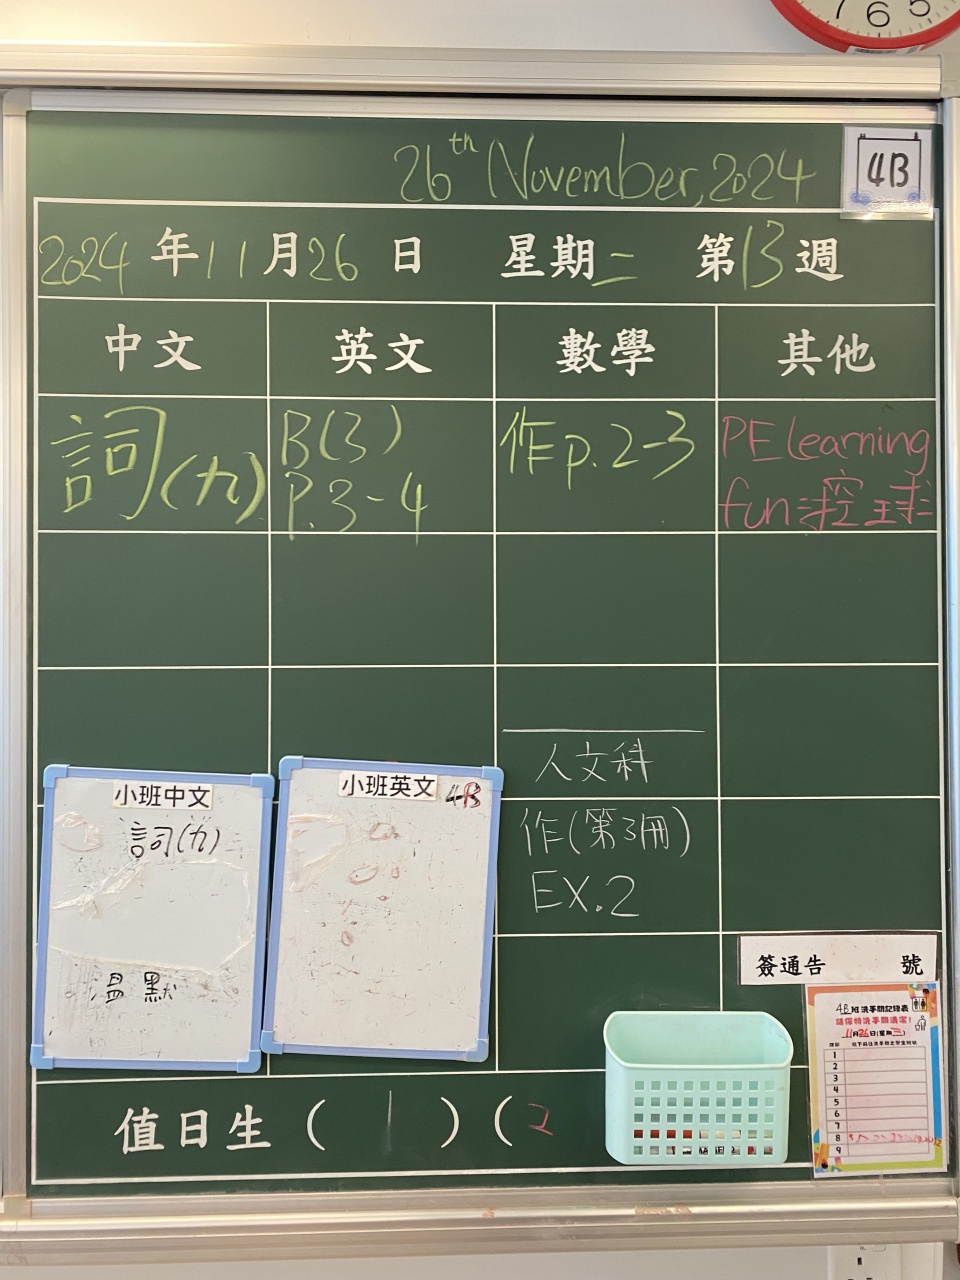 7 6 5
26th November, 2024
4B
2024年11月26日 星期二 第13週
中文 英文 數學 其他
詞(九)
B(3)
P.3-4
作p.2-3
PE learning
fun:控球
人文科
作(第3冊)
EX.2
小班中文
詞(九)
溫 默
小班英文 4B
簽通告 號
4B班洗手間記錄表
請保持洗手間清潔！
11月26日(星期二)
1
2
3
4
5
6
7
8
9
值日生( 1 )( 2